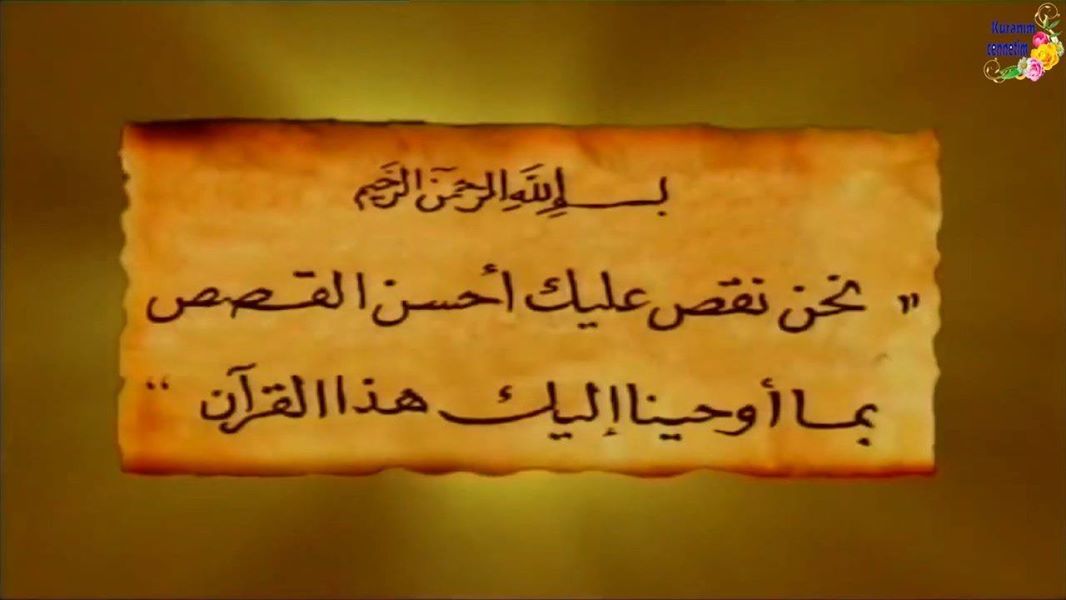 Kuranım
cennetim
بسم الله الرحمن الرحيم
" نحن نقص عليك أحسن القصص
بما أوحينا إليك هذا القرآن "